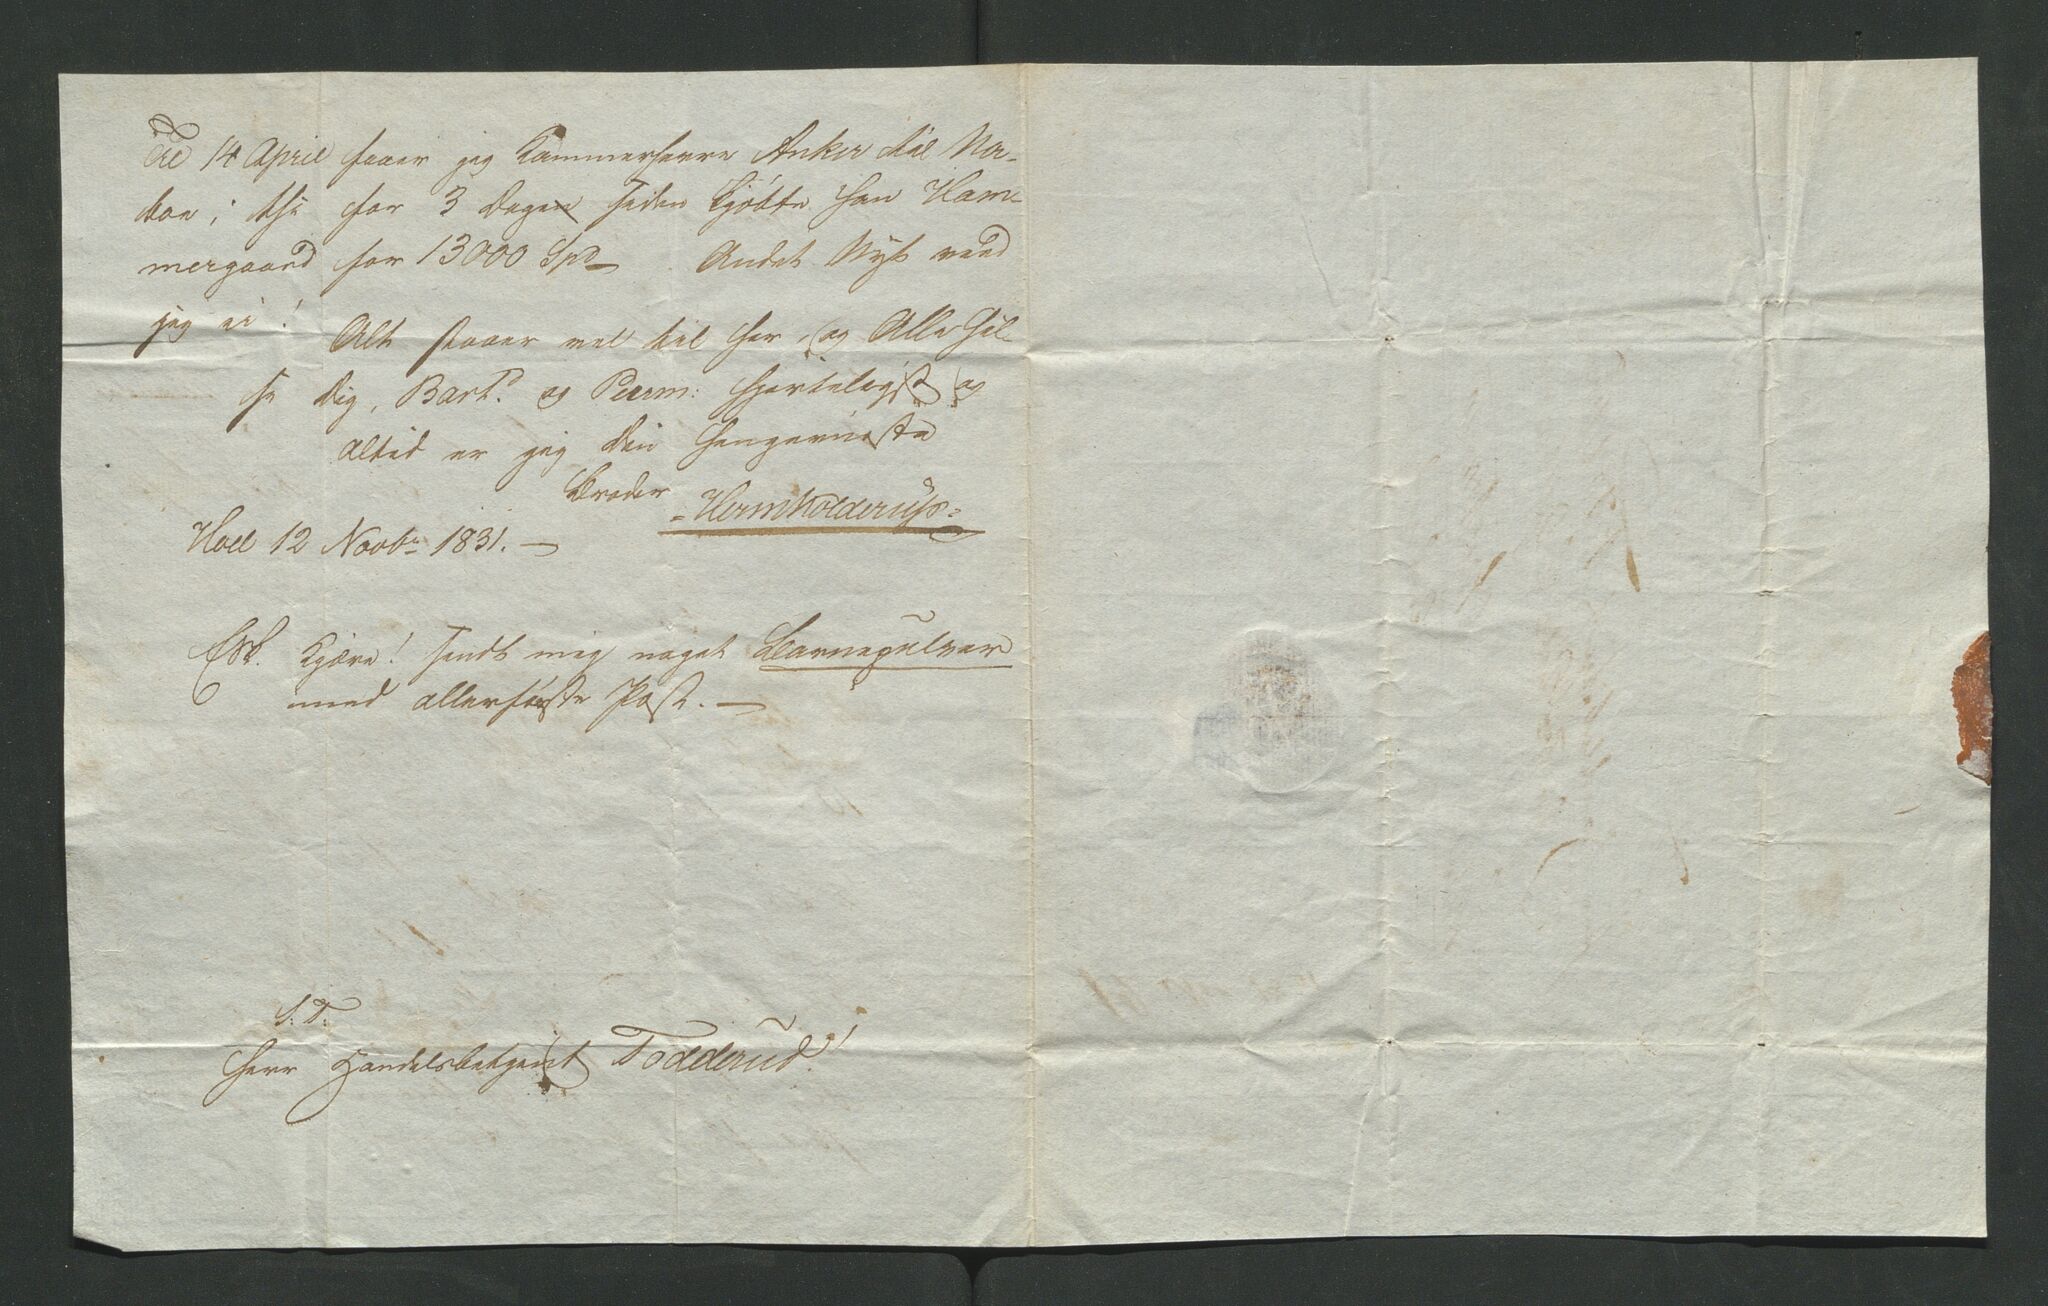 Til 14 April faaer jeg Kammerherre Anker til Na-
boe; thi for 3 Dage siden kjöbte han Ham-
mergaard for 13000 Spd. Andet Nyt veed
jeg ei!
Alt staaer vel til her, og Alle hil-
se Dig, Bart. og Peerm: hjerteligst og
altid er jeg din hengivneste
Broder
Hoel 12 Novbr 1831.
Esk. Kjære! send mig noget Barnepulver
med allerförste Post.
S. T.
Herr Handelsbetjent Todderud!